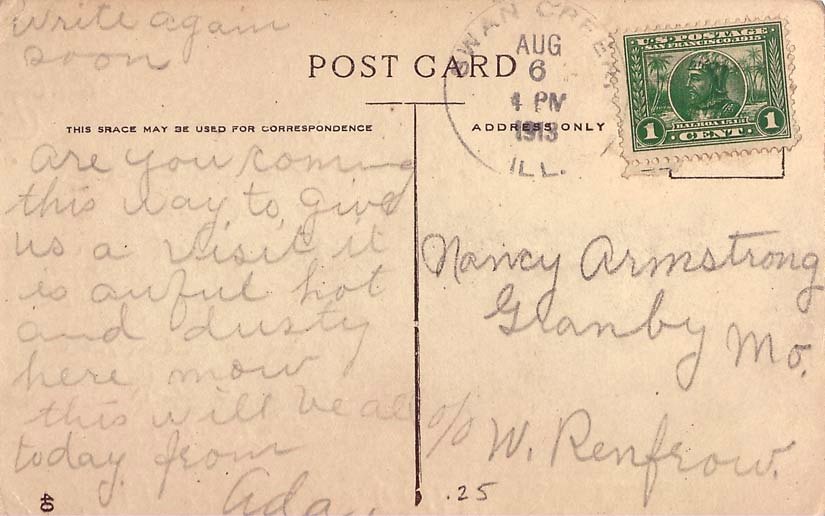 write again
soon
POST CARD
THIS SRACE MAY BE USED FOR CORRESPONDENCE
are you coming
this way to give
us a visit it
is awful hot
and dusty
here, mow
this will be all
today. from
Ada.
40
SWAN CREEK
AUG
6
4 PM
1913
ILL.
ADDRESS ONLY
U.S. POSTAGE
SAN FRANCISCO 1915
BALBOA 1513
1 CENT. 1
Nancy Armstrong
Granby Mo.
c/o W. Renfrow.
.25